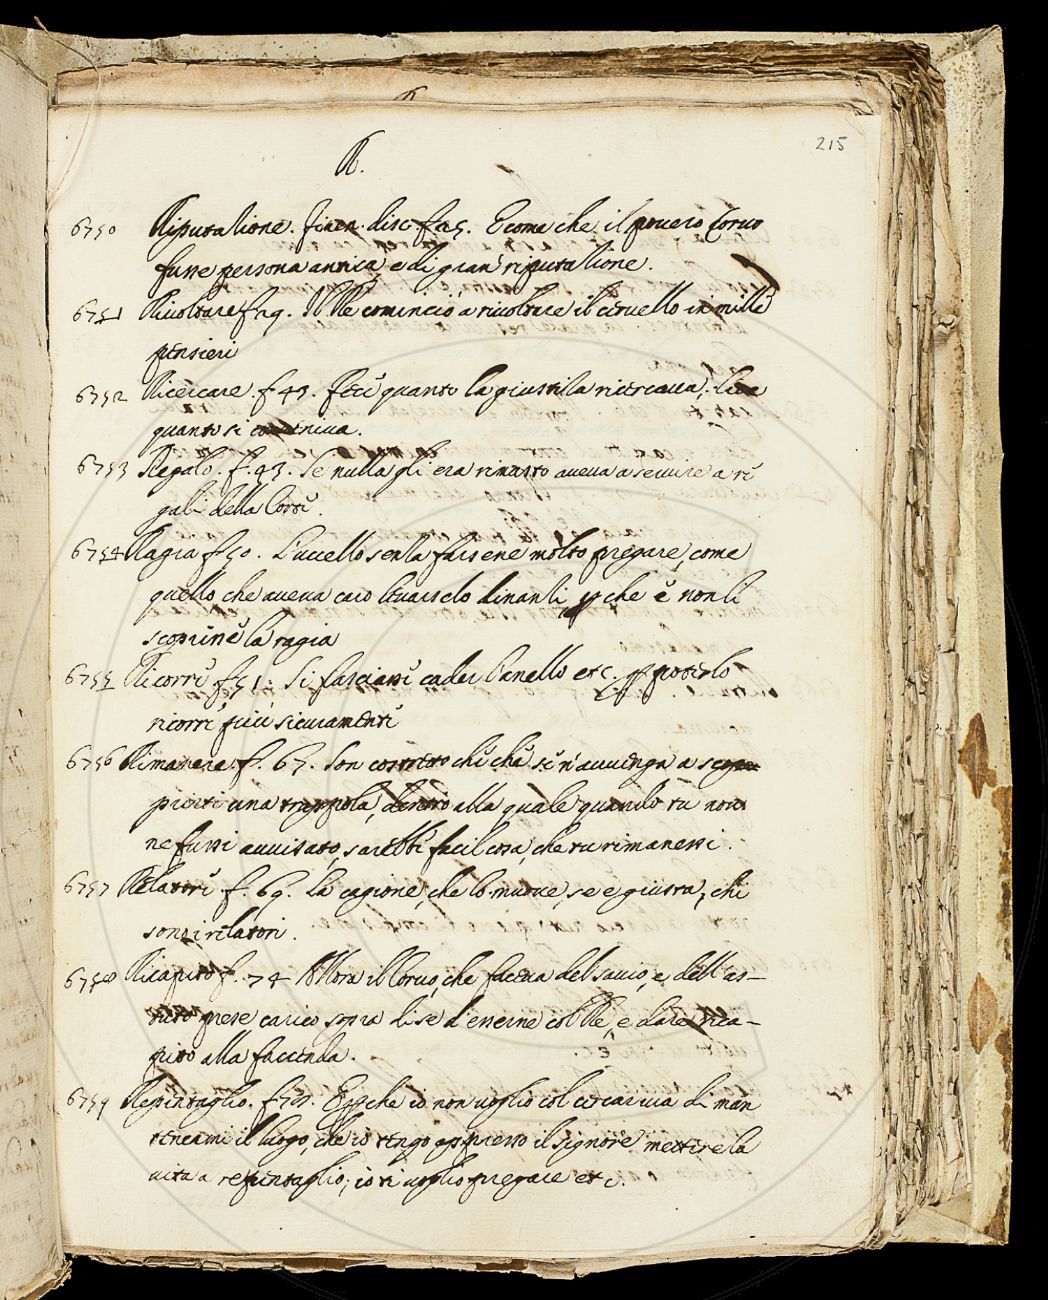 R.
215
6750 Riputazione. Firen. disc. f. 25. E come che il povero Corvo
fusse persona antica, e di gran riputazione.
6751 Rivoltare f. 29. Il Re cominciò a rivoltare il cervello in mille
pensieri
6752 Ricercare f. 43. Fece quanto la giustizia ricercava,
quanto si conveniva.
6753 Regalo. f. 43. Se nulla gli era rimasto aveva a servire a re
gali della Corte.
6754 Ragia f. 50. L'uccello senza farsene molto pregare, come
quello che aveva caro levarselo dinanzi, p che e' non li
scoprisse la ragia
6755 Ricorre f. 51. Si lasciasse cader l'anello etc. p poterlo
ricorre più sicuramente
6756 Rimanere f. 67. Son costretto che che se n'avvenga a
pierti una trappola, dentro alla quale quando tu non
ne fussi avvisato, sarebbe facil cosa, che tu rimanessi.
6757 Relatore f. 69. La cagione, che lo muove, se è giusta, chi
sono i relatori.
6758 Ricapito f. 74 Allora il Corvo, che faceva del savio, e dell'as-
tuto prese carico sopra di se d'esserne col Re, e dare rica-
pito alla faccenda.
6759 Repentaglio. f. 78. E pche io non voglio col cercar via di man
tenermi il luogo, che io tengo appresso il signore mettere la
vita a repentaglio, io ti voglio pregare etc.